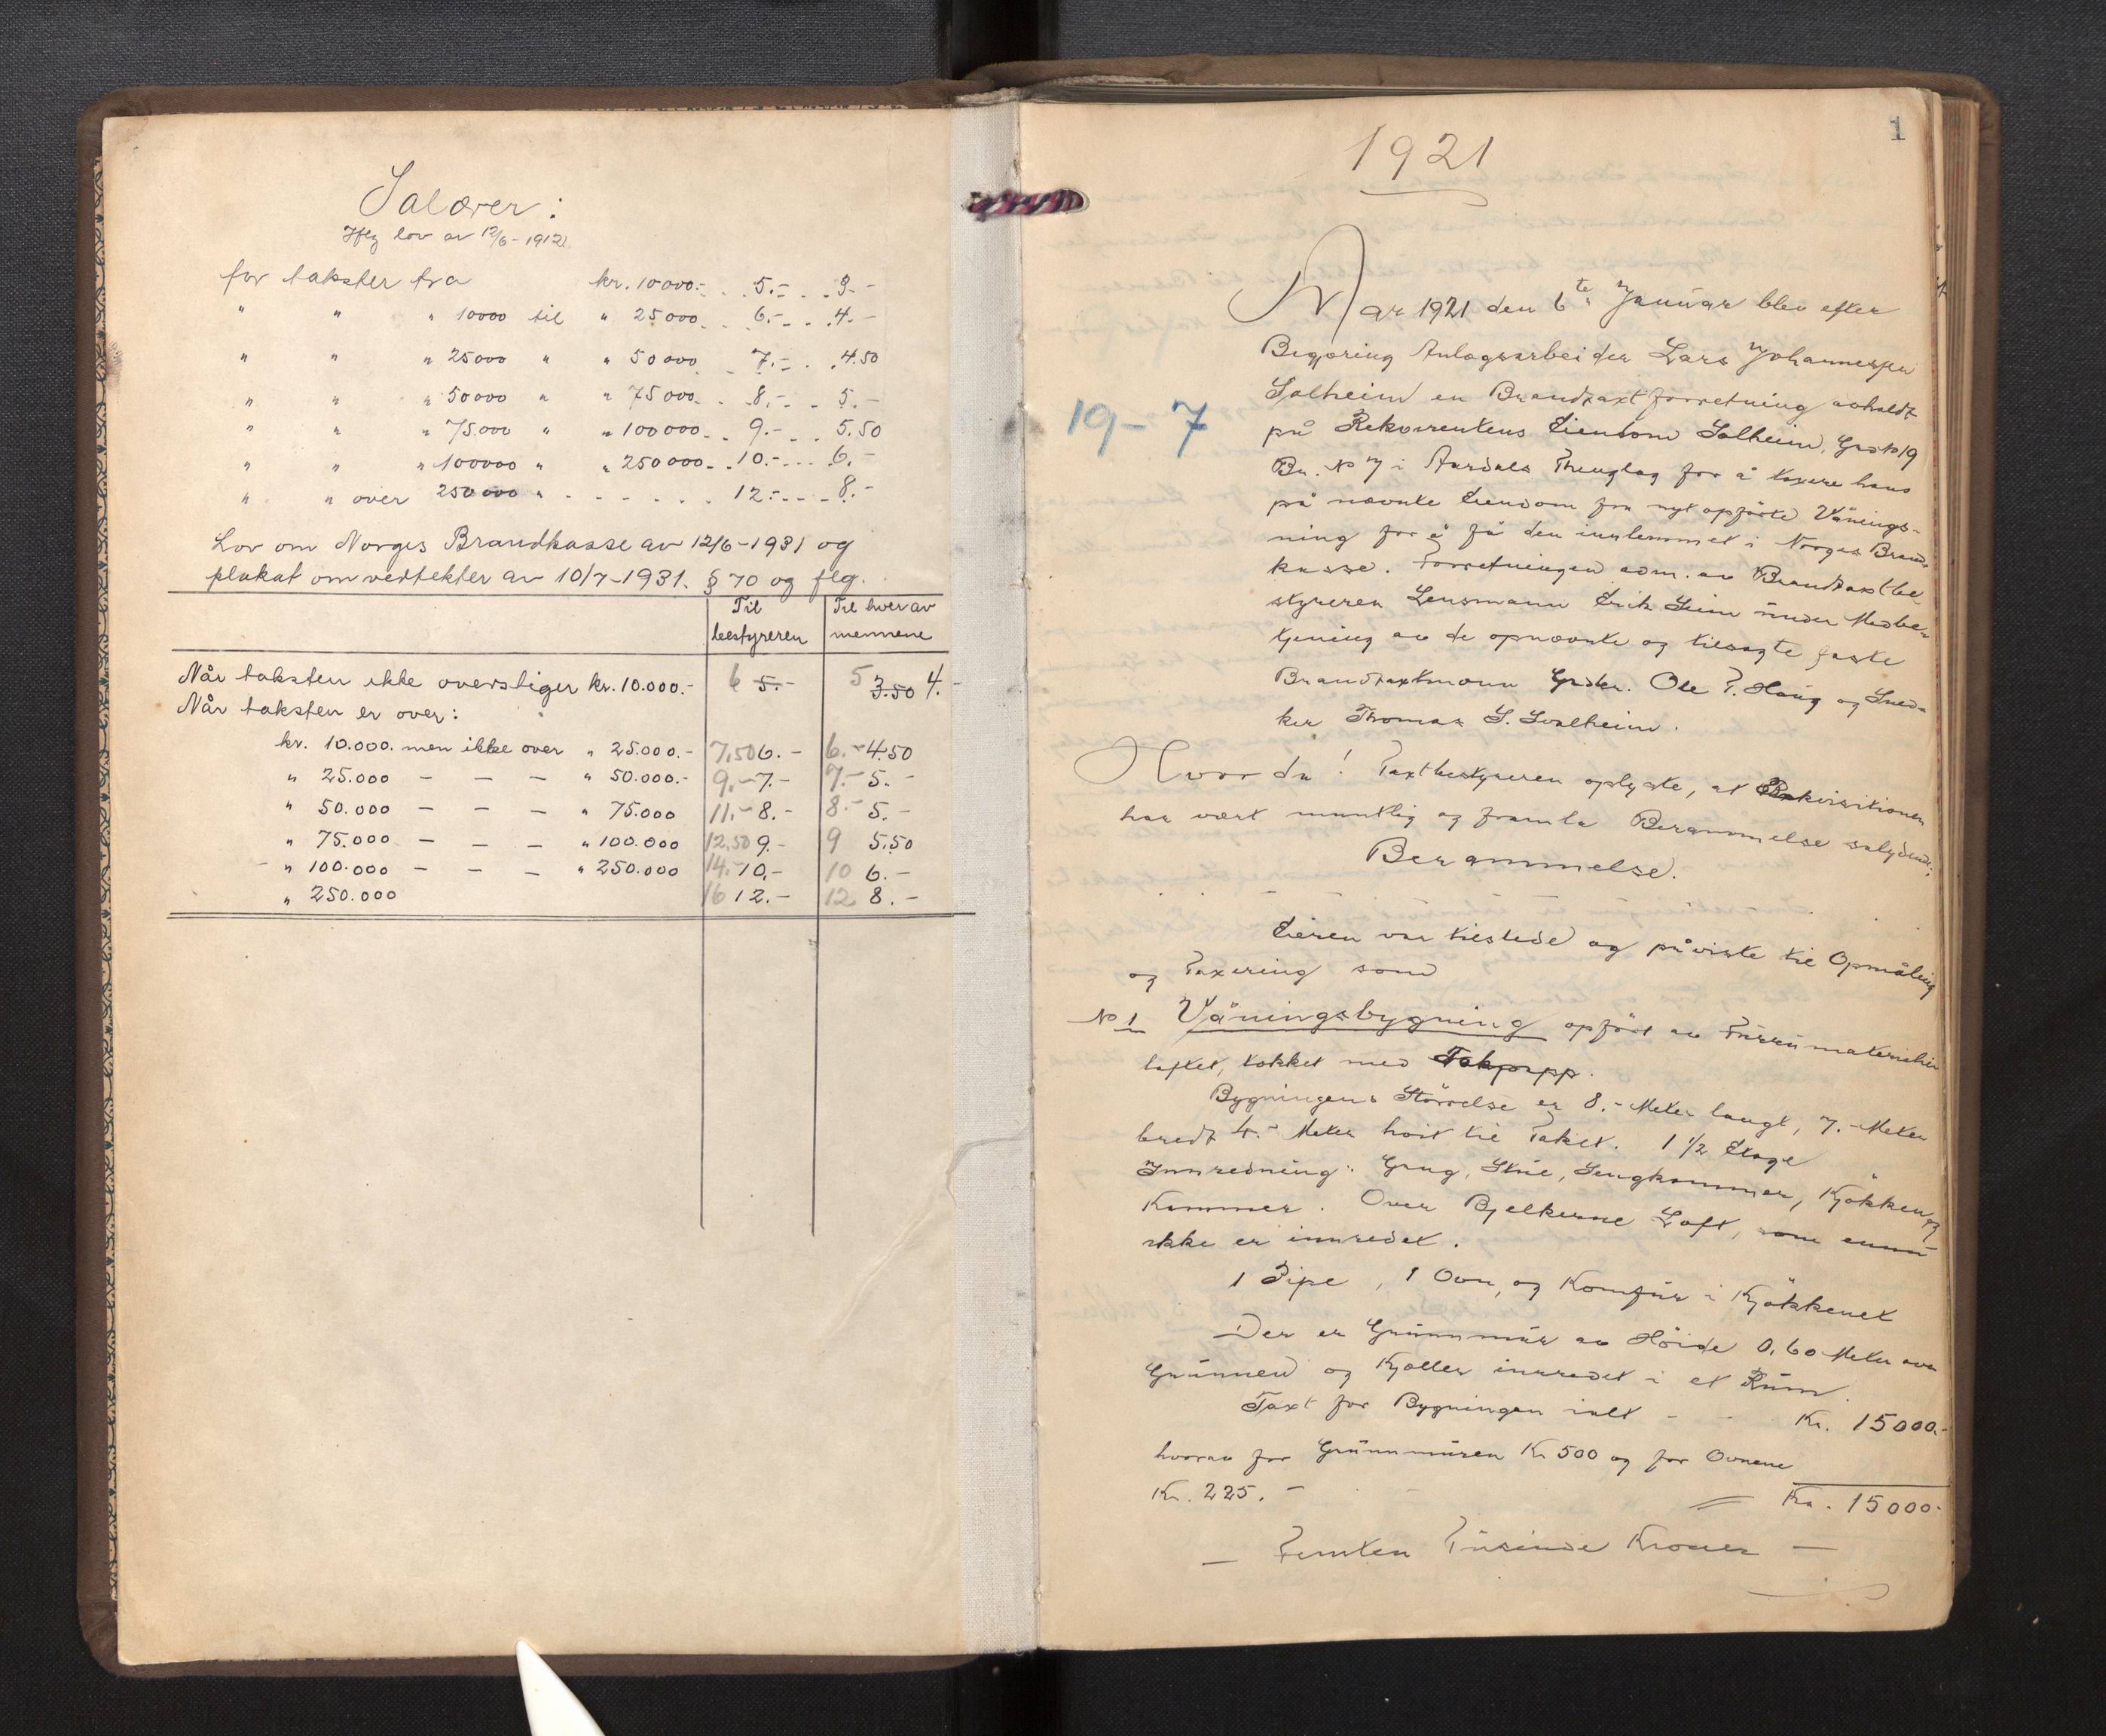 Salærer:
Iflg lov av 12/6-1912.
for takster fra kr. 10000.- . . 5.- . . 3.-
" " " 10000 til " 25000. . 6.- . . 4.-
" " " 25000 " " 50000 . 7.- . . 4.50
" " " 50000 " " 75000 . . 8.- . . 5.-
" " " 75.000 " " 100000. . 9.- . . 5.50
" " " 100000 " " 250000. . 10.- . . 6.-
" " over 250000 " . . . . . . 12.- . . 8.-
Lov om Norges Brandkasse av 12/6-1931 og
plakat om vedtekter av 10/7-1931. § 70 og flg.
Til bestyreren
Til hver av mennene
Når taksten ikke overstiger kr. 10.000.- 6 5.- 5 3.50 4.-
Når taksten er over:
kr. 10.000. men ikke over " 25.000.- 7,50 6.- 6.- 4.50
" 25.000 - - - " 50.000.- 9.- 7.- 7.- 5.-
" 50.000 - - - " 75.000 11.- 8.- 8.- 5.-
" 75.000 - - - " 100.000 12,50 9.- 9 5.50
- " 100.000 - - - " 250.000 14. 10.- 10 6.-
" 250.000 16 12.- 12 8.-
1
1921
19-7
Aar 1921 den 6te Januar blev efter
Begjæring Anlagsarbeider Lars Johannessen
Solheim en Brandtaxtforretning avholdt
på Rekvirentens Eiendom Solheim, Grs No 19
Br. No 7 i Aardals Thinglag for å taxere hans
på nævnte Eiendom fra nyt opførte Vånings-
ning for å få den innlemmet i Norges Brand-
kasse. Forretningen adm. av Brandtaxtbe-
styreren Lensmann Erik Seim under Medbe-
tjening av de opnævnte og tilsagte faste
Brandtaxtmænn Grdbr. Ole T. Haug og Sned-
ker Thomas S. Svalheim.
Hvorda! Taxtbestyreren oplyste, at Rekvisitionen
har vært muntlig og framla Berammelse salydende:
Berammelse.
Eieren var tilstede og påviste til Opmåling
og Taxering som
No 1 Våningsbygning opført av Furumaterialier
loftet, tækket med Takpapp.
Bygningens Størrelse er 8.- Meter langt, 7.- Meter
bredt 4.- Meter høit til Taket. 1 1/2 Etage
Innredning: Gang, Stue, Sengkammer, Kjøkken og
Kammer. Over Bjelkerne Loft, som ennu
ikke er innredet.
1 Pipe, 1 Ovn, og Komfur i Kjøkkenet
Der er Grunnmur av Høide 0.60 Meter over
Grunnen og Kjeller innredet i et Rum.
Taxt for Bygningen ialt - - Kr. 15000.-
hvorav for Grunnmuren Kr 500 og for Ovnene
Kr. 225.- = Kr. 15000.-
- Femten Tusinde Kroner -